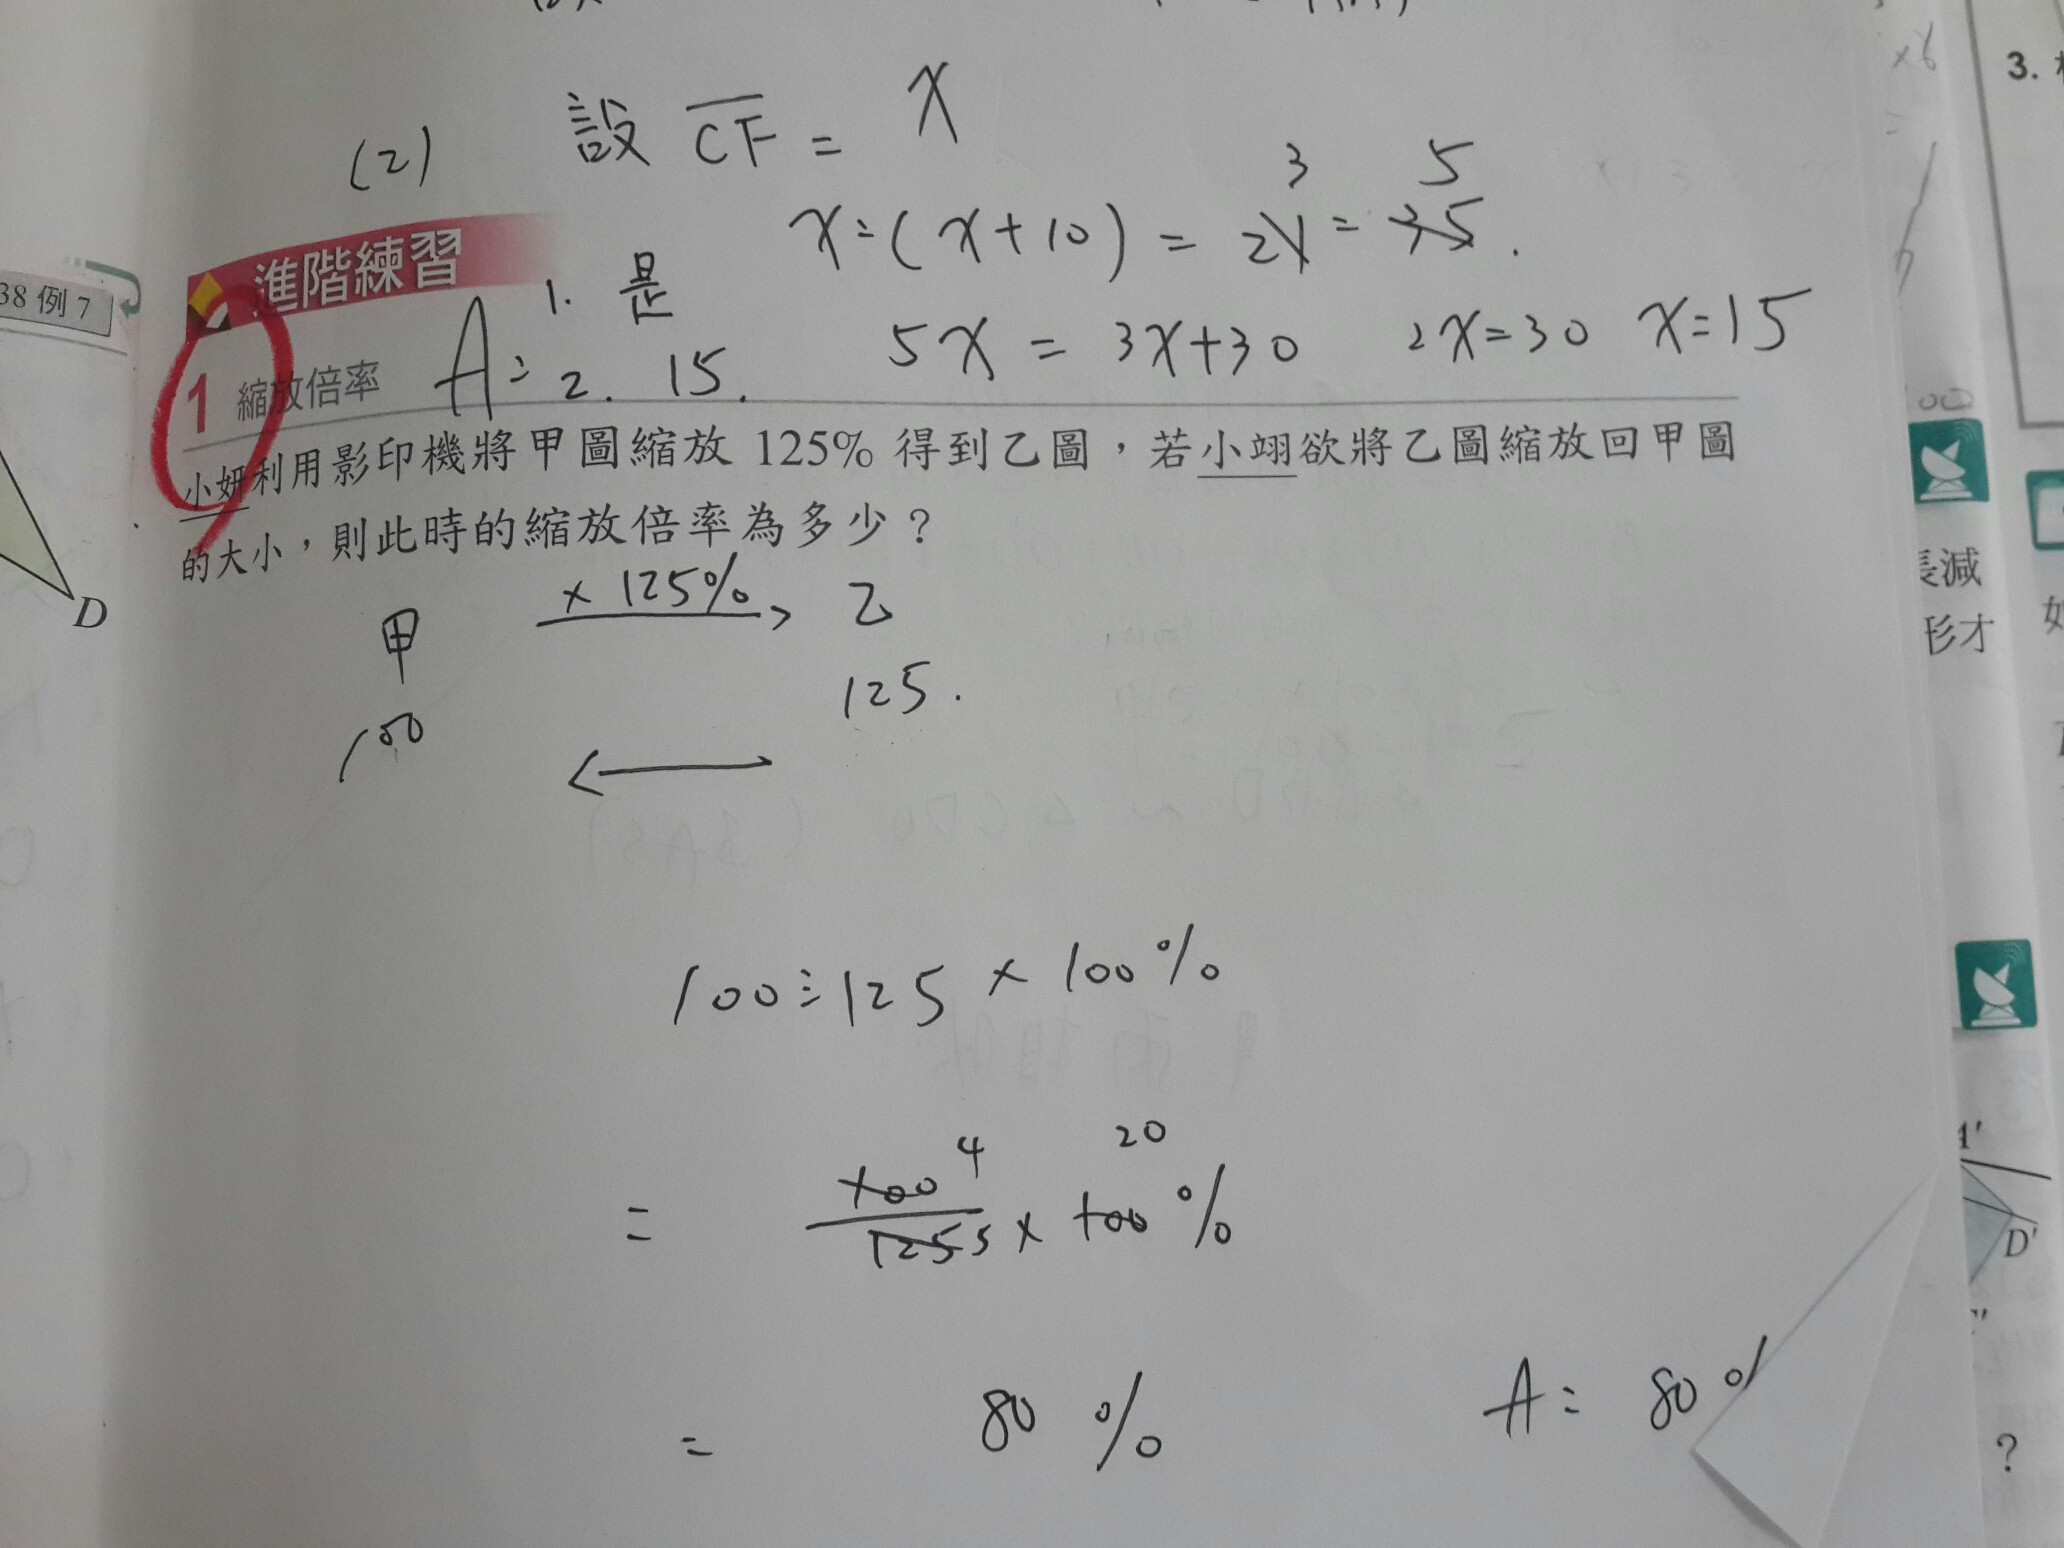 (2) 設 CF = x
3 5
x:(x+10) = 21 = 35.
進階練習
1. 是
5x = 3x+30 2x=30 x=15
1 縮放倍率 A: 2. 15.
小妍利用影印機將甲圖縮放 125% 得到乙圖，若小翊欲將乙圖縮放回甲圖
的大小，則此時的縮放倍率為多少？
甲 × 125% 乙
100 125.
100÷125 × 100%
4 20
= 100/125 5 × 100%
= 80 % A: 80%
38 例 7
D
3.
×6
00
長減
形才
A'
D'
?